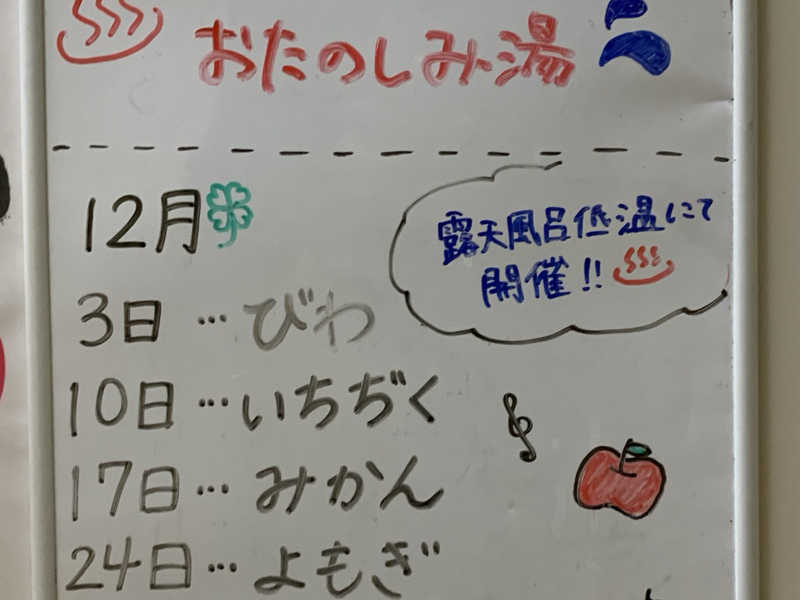 おたのしみ湯
12月
露天風呂低温にて
開催!!
3日…びわ
10日…いちぢく
17日…みかん
24日…よもぎ